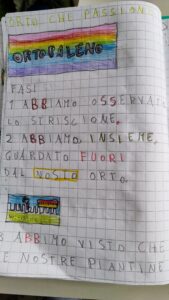 ORTO CHE PASSIONE
ORTOBALENO
FASI
1 ABBIAMO OSSERVATO
LO STRISCIONE.
2 ABBIAMO, INSIEME,
GUARDATO FUORI
DAL NOSTO ORTO.
3 ABBIMO VISTO CHE
E NOSTRE PIANTINE